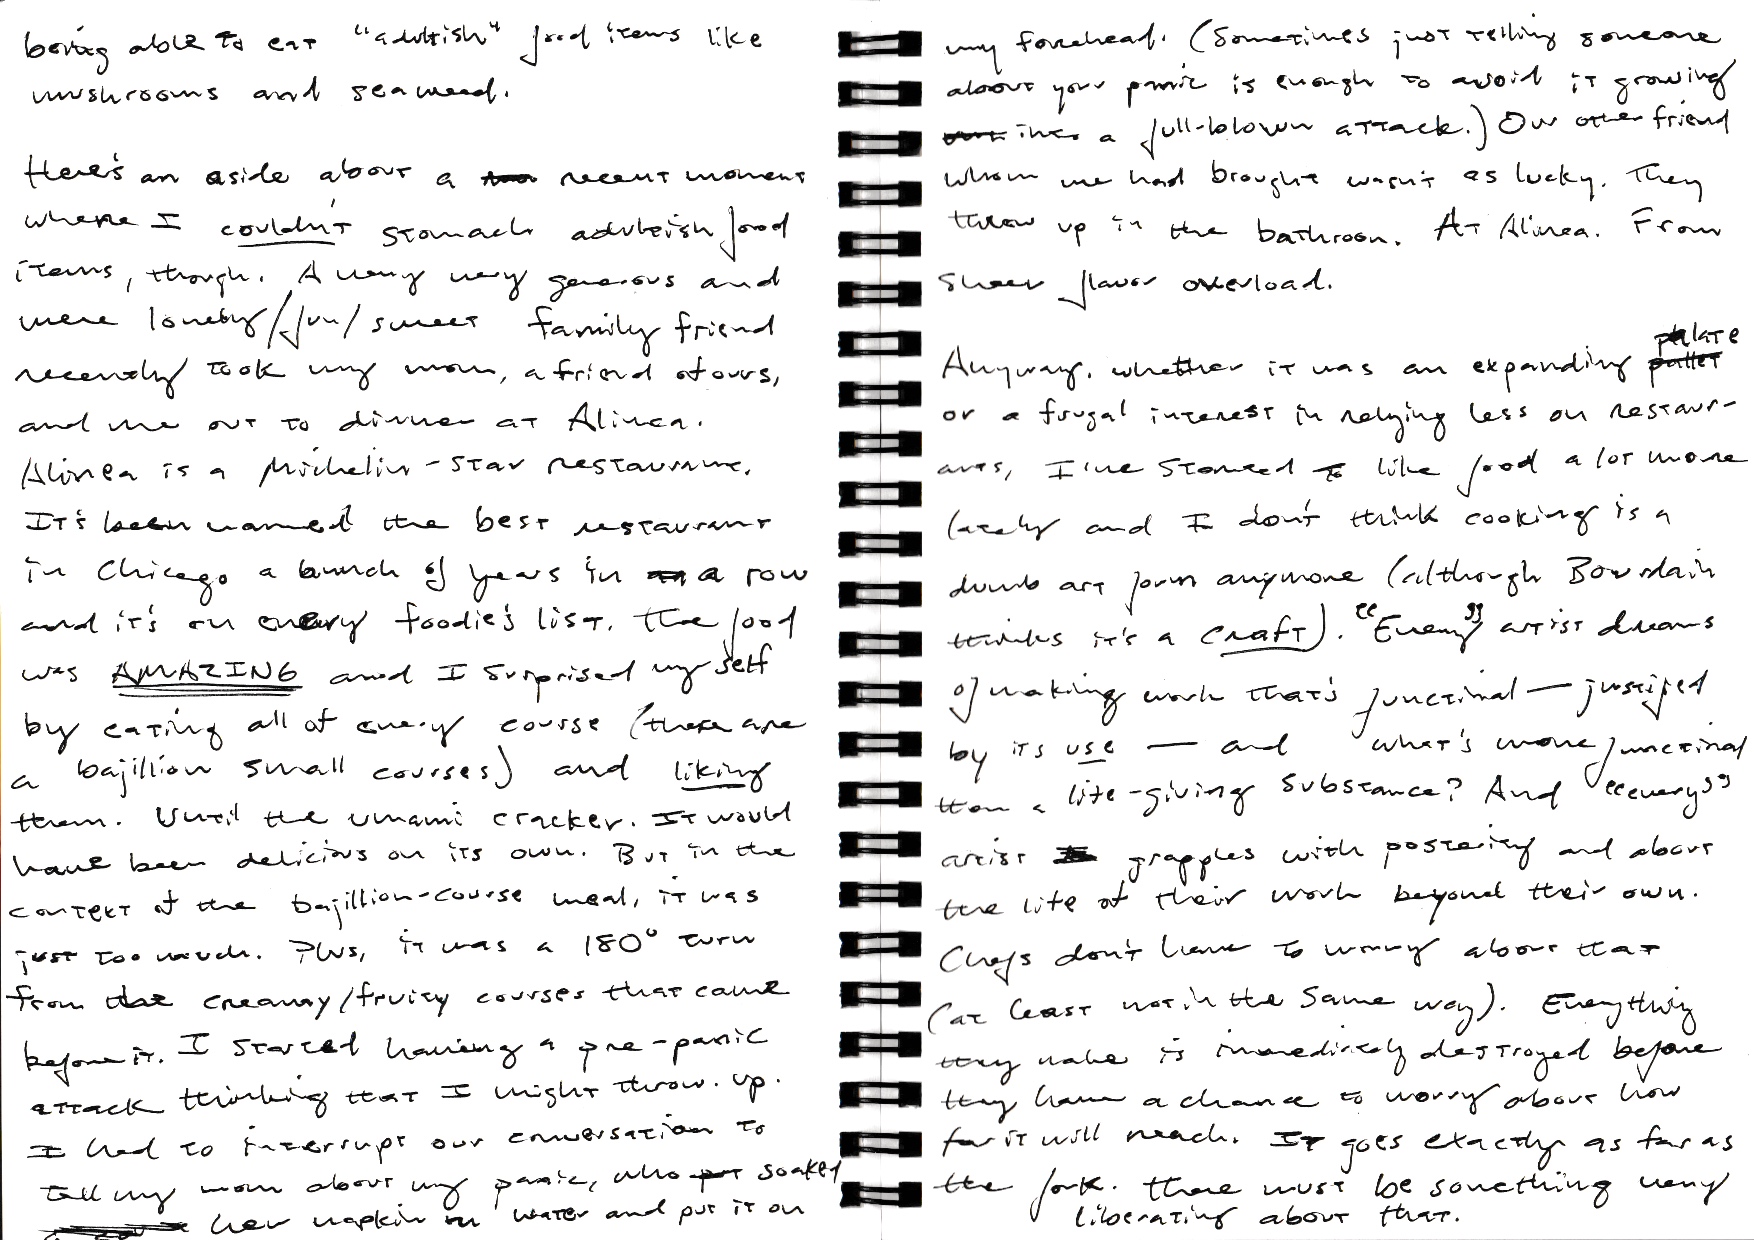 being able to eat "adultish" food items like
mushrooms and seaweed.
Here's an aside about a recent moment
where I couldn't stomach adultish food
items, though. A very very generous and
were lovely/fun/sweet family friend
recently took my mom, a friend of ours,
and me out to dinner at Alinea.
Alinea is a Michelin-star restaurant.
It's been named the best restaurant
in Chicago a bunch of years in a row
and it's on every foodie's list. The food
was AMAZING and I surprised myself
by eating all of every course (there are
a bajillion small courses) and liking
them. Until the umami cracker. It would
have been delicious on its own. But in the
context of the bajillion-course meal, it was
just too much. Plus, it was a 180° turn
from the creamy/fruity courses that came
before it. I started having a pre-panic
attack thinking that I might throw up.
I had to interrupt our conversation to
tell my mom about my panic, who soaked
her napkin in water and put it on
my forehead. (Sometimes just telling someone
about your panic is enough to avoid it growing
into a full-blown attack.) Our other friend
whom we had brought wasn't as lucky. They
threw up in the bathroom. At Alinea. From
sheer flavor overload.
Anyway, whether it was an expanding palate
or a frugal interest in relying less on restaur-
ants, I've started to like food a lot more
lately and I don't think cooking is a
dumb art form anymore (although Bourdain
thinks it's a craft). "Every" artist dreams
of making work that's functional — justified
by its use — and what's more functional
than a life-giving substance? And "every"
artist grapples with posterity and about
the life of their work beyond their own.
Chefs don't have to worry about that
(at least not in the same way). Everything
they make is immediately destroyed before
they have a chance to worry about how
far it will reach. It goes exactly as far as
the fork. There must be something very
liberating about that.